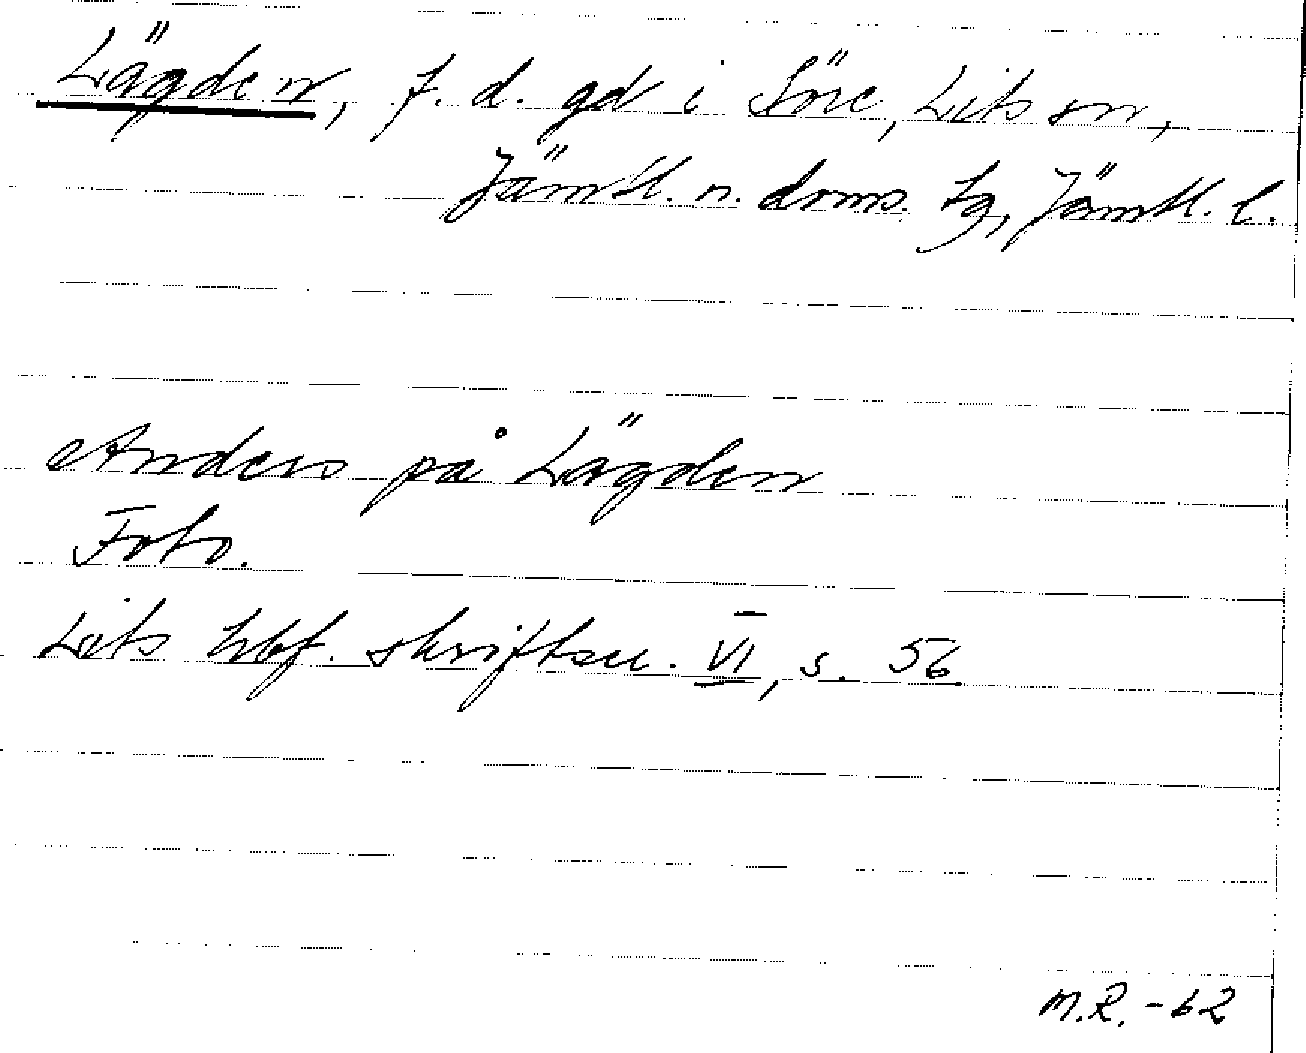 Lägden, f. d. gd i Söre, Lits sn,
Jämtl. n. doms. tg, Jämtl. l.
Anders på Lägden
Foto.
Lits hbf. skriftser. VI, s. 56
M.R. -62